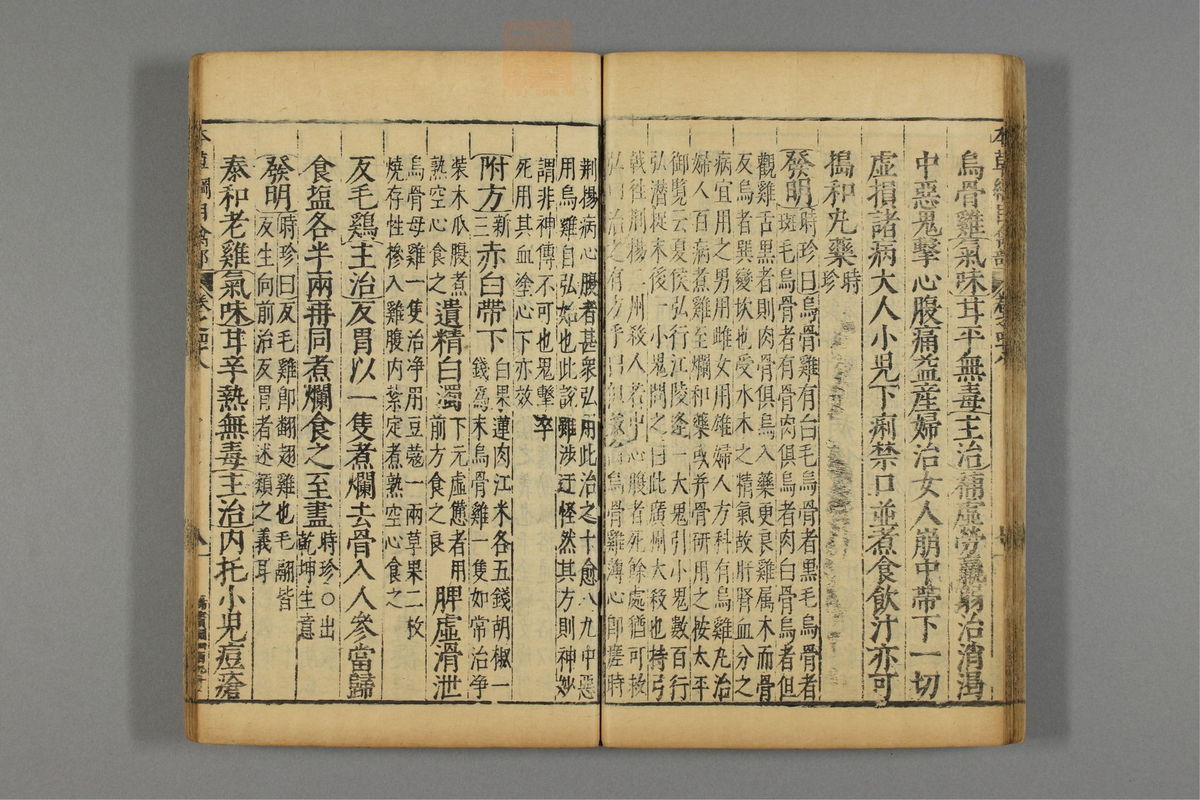 烏骨雞氣味甘平無毒主治補虛勞羸弱治消渴
中惡鬼擊心腹痛益産婦治女人崩中帶下一切
虛損諸病大人小兒下痢禁口並煮食飲汁亦可
搗和丸藥時珍
發明時珍曰烏骨雞有白毛烏骨者黑毛烏骨者
斑毛烏骨者有骨肉俱烏者肉白骨烏者但
觀雞舌黑者則肉骨俱烏入藥更良雞属木而骨
反烏者巽變坎也受水木之精氣故肝腎血分之
病宜用之男用雌女用雄婦人方科有烏雞丸治
婦人百病煮雞至爛和藥或并骨研用之按太平
御覧云夏侯弘行江陵逢一大鬼引小鬼數百行
弘潛捉末後一小鬼問之曰此廣州大殺也持弓
戟往荆揚二州殺人若中心腹者死餘處猶可救
弘曰治之有方乎曰但殺白烏骨雞薄心即瘥時
荆揚病心腹者甚衆弘用此治之十愈八九中惡
用烏雞自弘始也此說雖涉迂怪然其方則神妙
謂非神傳不可也鬼擊卒
死用其血塗心下亦效
附方新三赤白帶下白果蓮肉江米各五錢胡椒一
錢為末烏骨雞一隻如常治淨
裝木瓜腹煮
熟空心食之遺精白濁下元虛憊者用
前方食之良脾虛滑泄
烏骨母雞一隻治淨用豆蔻一兩草果二枚
燒存性摻入雞腹内紮定煮熟空心食之
反毛鷄主治反胃以一隻煮爛去骨入人參當歸
食盐各半兩再同煮爛食之至盡時珍○出
乾坤生意
發明時珍曰反毛雞即翻翅雞也毛翮皆
反生向前治反胃者述類之義耳
泰和老雞氣味甘辛熱無毒主治内托小兒痘瘡